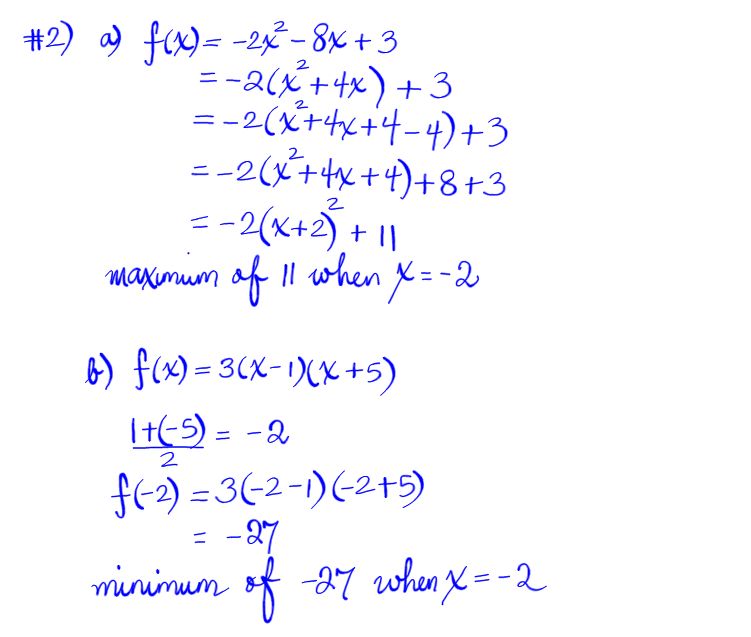 #2) a) f(x) = -2x² - 8x + 3
= -2(x² + 4x) + 3
= -2(x² + 4x + 4 - 4) + 3
= -2(x² + 4x + 4) + 8 + 3
= -2(x+2)² + 11
maximum of 11 when x = -2
b) f(x) = 3(x-1)(x+5)
1+(-5)/2 = -2
f(-2) = 3(-2-1)(-2+5)
= -27
minimum of -27 when x = -2